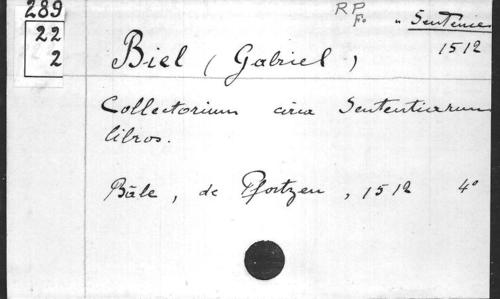 289
22
2
RP
Fo
" Sentences
1512
Biel (Gabriel)
Collectorium circa Sententiarum
libros.
Bâle, de Pfortzen, 1512 4°